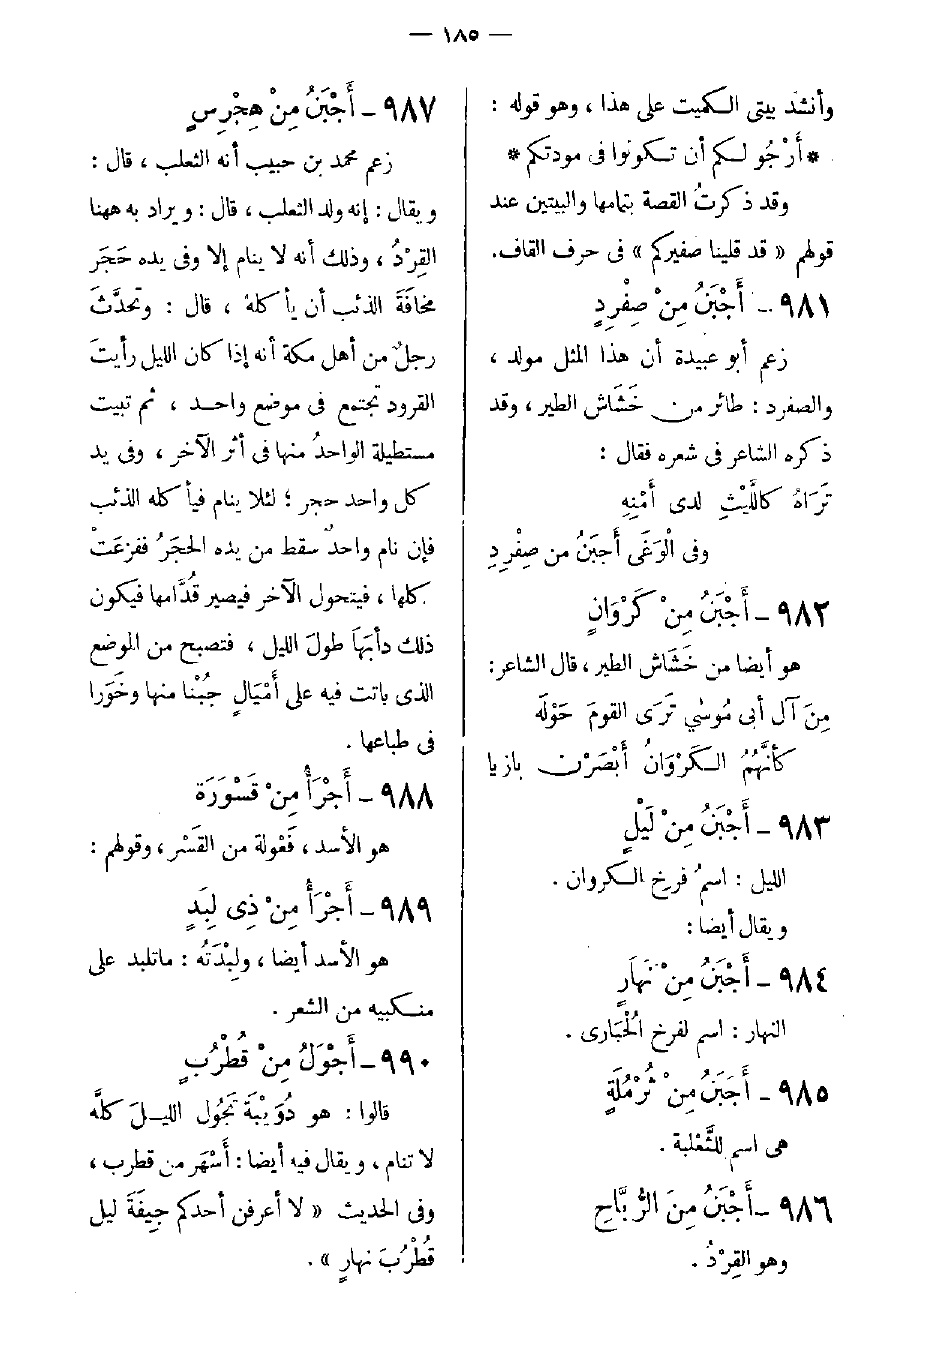 — ١٨٥ —
وأنشد بيتى الكميت على هذا ، وهو قوله :
* أَرْجُو لكم أن تكونوا فى مودتكم *
وقد ذكرتُ القصة بتمامها والبيتين عند
قولهم « قد قلينا صفيركم » فى حرف القاف.
٩٨١ – أَجْبَنُ مِنْ صِفْرِدٍ
زعم أبو عبيدة أن هذا المثل مولد ،
والصفرد : طائر من خَشَاش الطير ، وقد
ذكره الشاعر فى شعره فقال :
تَرَاهُ كَاللَّيْثِ لدى أَمْنِهِ
وفى الْوَغَى أَجبَنُ من صِفْرِدِ
٩٨٢ – أَجْبَنُ مِنْ كَرْوَانٍ
هو أيضا من خَشَاش الطير ، قال الشاعر:
مِنَ آل أبى مُوسَى تَرَى القومَ حَوْلَه
كأنَّهُمُ الكَرْوَانُ أَبْصَرْنَ بازيا
٩٨٣ – أَجْبَنُ مِنْ لَيْلٍ
الليل : اسمُ فرخ الكروان .
ويقال أيضا :
٩٨٤ – أَجْبَنُ مِنْ نَهَارٍ
النهار : اسم لفرخ الْحُبَارى .
٩٨٥ – أَجْبَنُ مِنْ ثُرْمُلَةٍ
هى اسم للثَّعْلبة .
٩٨٦ – أَجْبَنُ مِنَ الرُّبَّاحِ
وهو القِرْدُ .
٩٨٧ – أَجْبَنُ مِنْ هِجْرِسٍ
زعم محمد بن حبيب أنه الثعلب ، قال :
ويقال : إنه ولد الثعلب ، قال : ويراد به ههنا
القِرْدُ ، وذلك أنه لا ينام إلا وفى يده حَجَر
مخافَةَ الذئب أن يأكلهُ ، قال : وتحدَّثَ
رجلٌ من أهل مكة أنه إذا كان الليل رأيتَ
القرود تجتمع فى موضع واحد ، ثم تبيت
مستطيلة الواحدُ منها فى أثر الآخر ، وفى يد
كل واحد حجر ؛ لئلا ينام فيأكله الذئب
فإن نام واحدٌ سقط من يده الحجَرُ ففزعَتْ
كلها ، فيتحول الآخر فيصير قُدَّامها فيكون
ذلك دأبَهَا طولَ الليل ، فتصبح من الموضع
الذى باتت فيه على أَمْيَالٍ جُبْنا منها وخَوَرا
فى طباعها .
٩٨٨ – أَجْرَأُ مِنْ قَسْوَرَة
هو الأسد ، فَعْولة من القَسْر ، وقولهم :
٩٨٩ – أَجْرَأُ مِنْ ذِى لِبَدٍ
هو الأسد أيضا ، ولِبْدَتُه : ماتلبد على
منكبيه من الشعر .
٩٩٠ – أَجْوَلُ مِنْ قُطْرُبٍ
قالوا : هو دُوَيْبَّة تَجُول الليلَ كلَّه
لا تنام ، ويقال فيه أيضا : أَسْهَر من قطرب ،
وفى الحديث « لا أعرفن أحدكم جِيفَةَ ليل
قُطْرُبَ نهارٍ » .